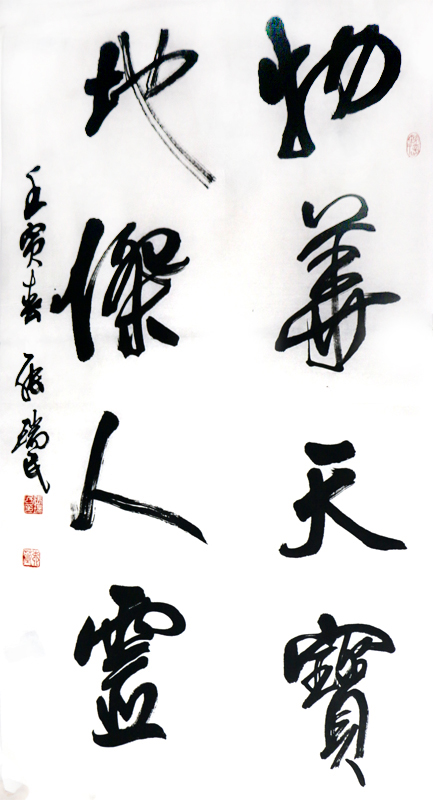 物華天寶
地傑人靈
壬寅春 瑞民